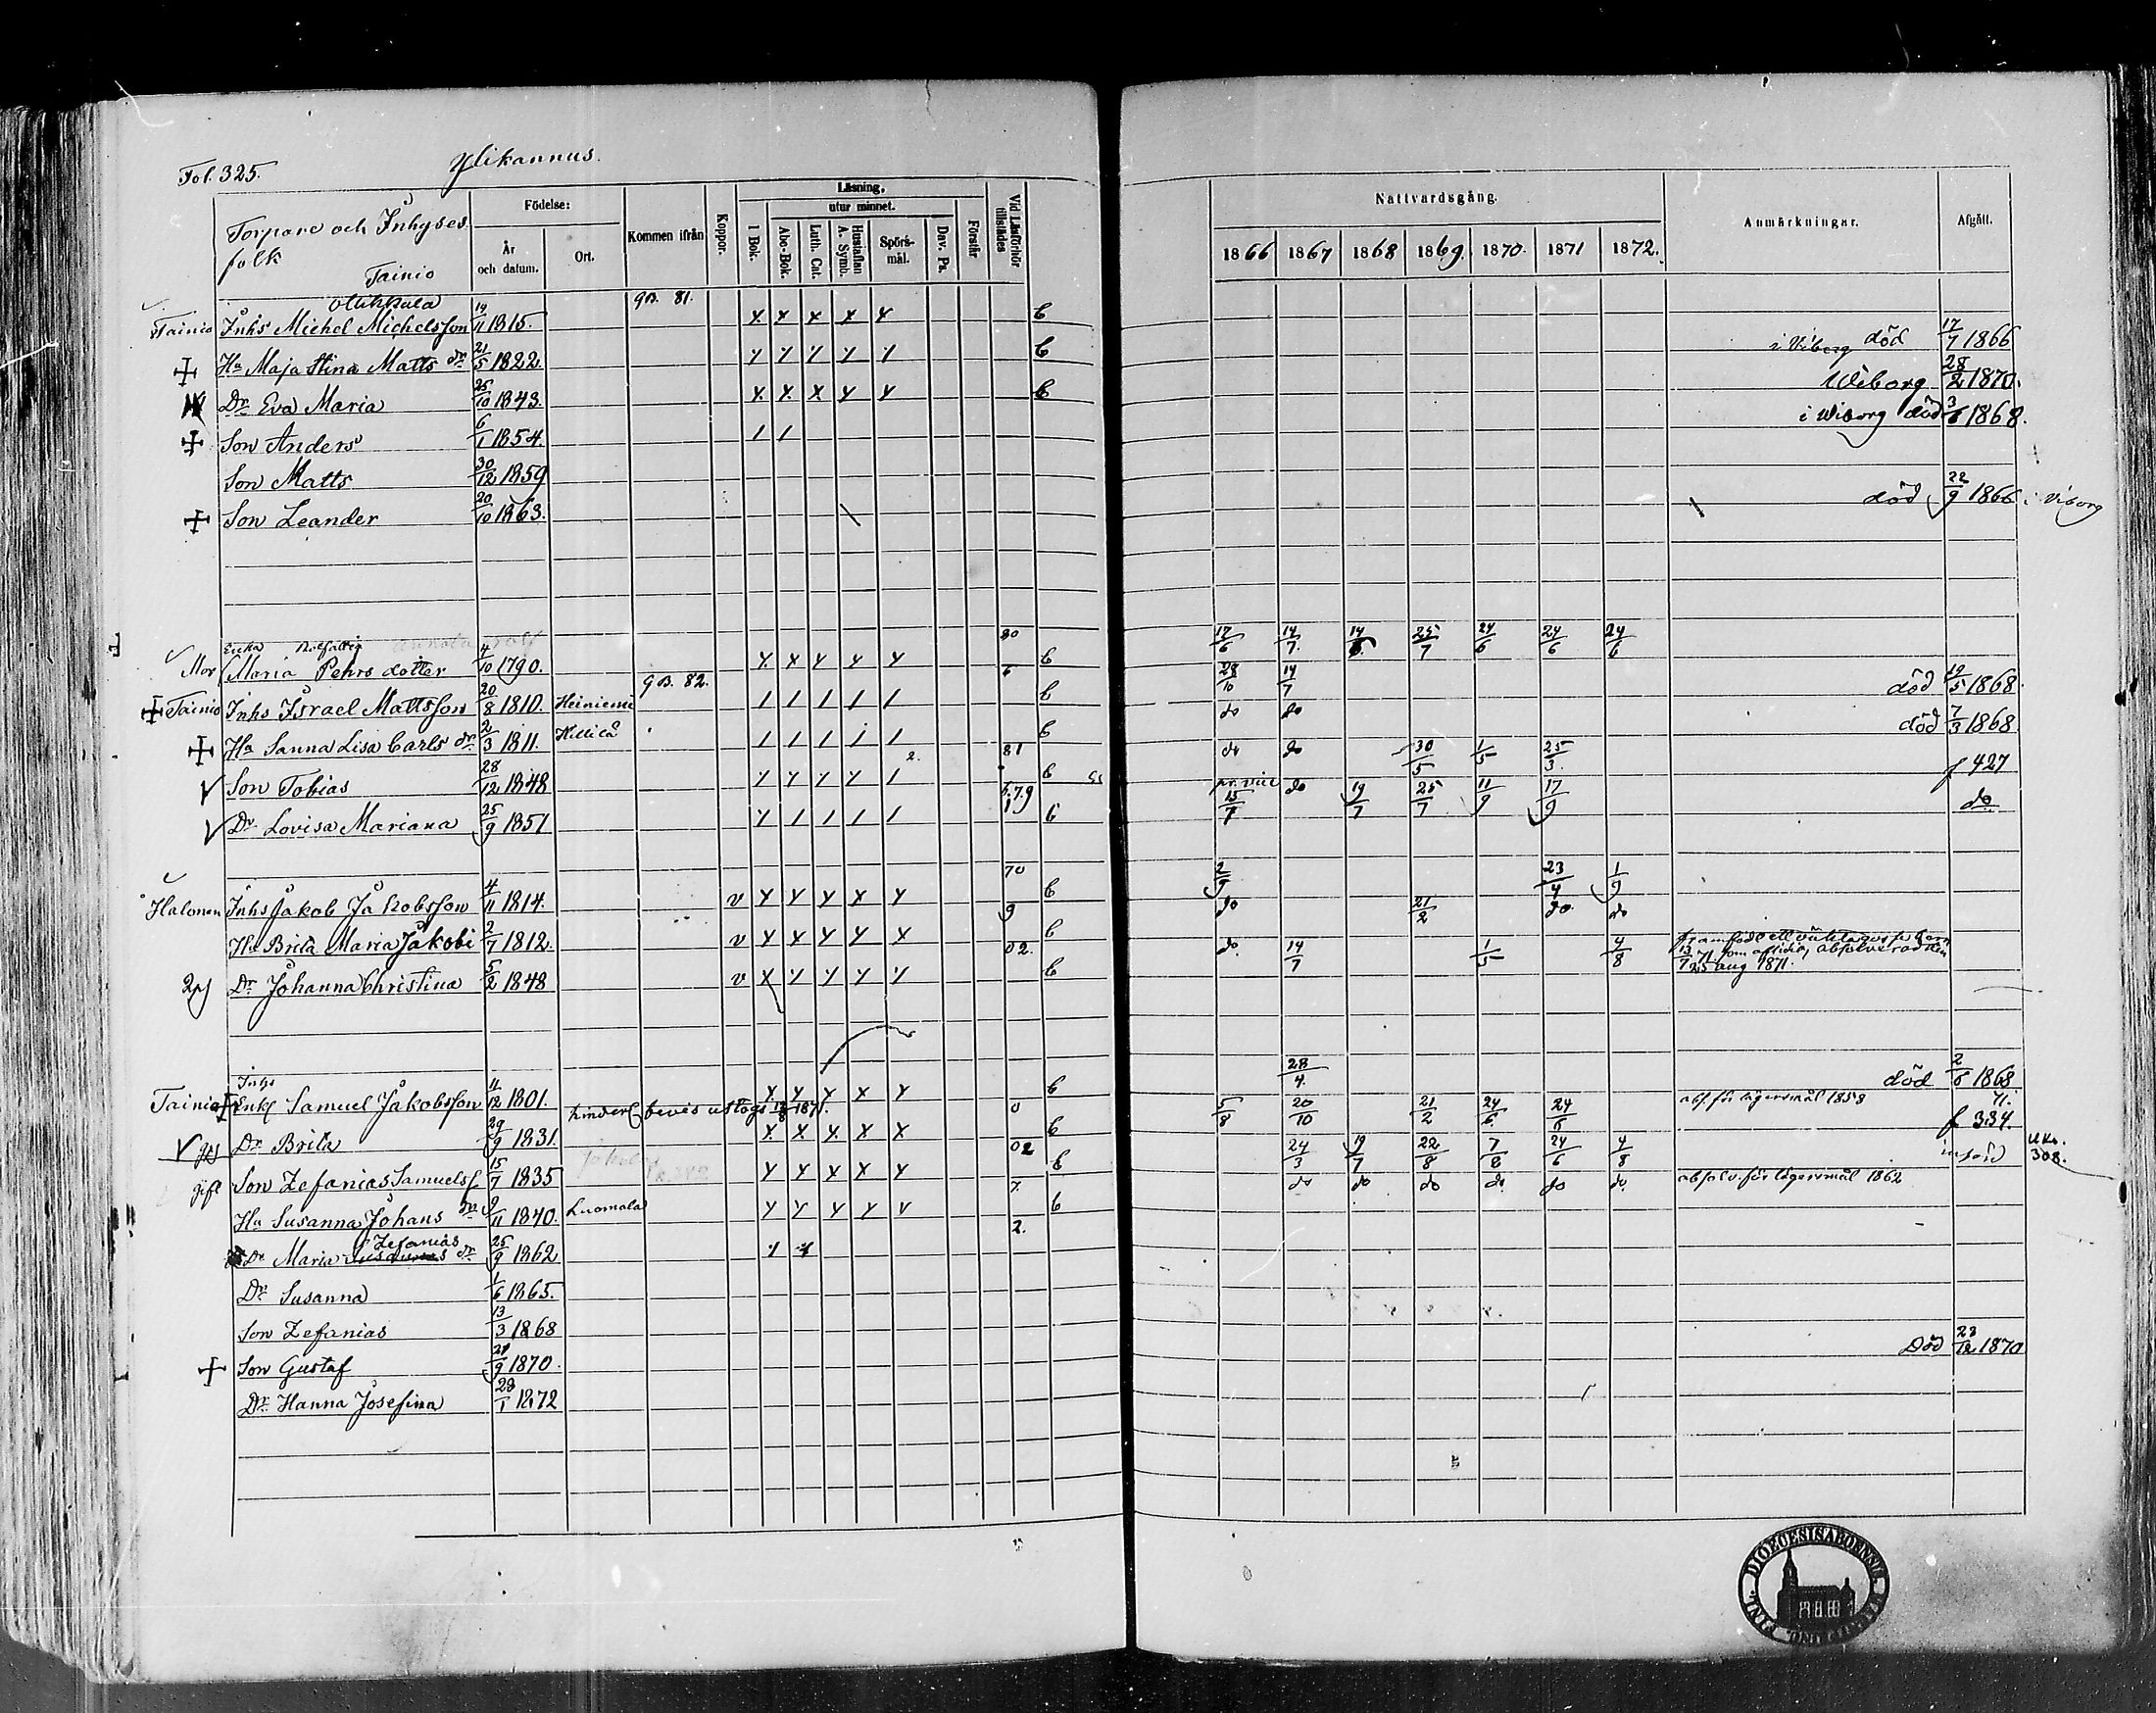 Fol. 325. Ylikannus.
Torpare och Inhyses folk Tainio
Födelse: År och datum. Ort. Kommen ifrån Koppor. Läsning, utur minnet. I Bok. Abc-Bok. Luth. Cat. Hustaflan A. Symb. Spörsmål. Dav. Ps. Förstår Vid Läsförhör tillstädes
Nattvardsgång. 1866 1867 1868 1869. 1870. 1871 1872. Anmärkningar. Afgått.
gB. 81.
Tainio Inhs Michel Michelsson 14/11 1815. x x x x x b
Ha Maja Stina Matts dr 21/5 1822. b i Viborg död 17/7 1866
Dr Eva Maria 25/10 1843. x x x x x b Wiborg 28/2 1870.
Son Anders 6/1 1854. i Wiborg död 3/6 1868.
Son Matts 30/12 1859
Son Leander 20/10 1863. död 22/9 1866 i Viborg
Enka
Mor Maria Pehrs dotter 4/10 1790. x x x x x 80 b 17/6 14/7 14/8. 25/7 24/6 24/6 24/6
gB. 82.
Tainio Inhs Israel Mattsson 20/8 1810. Heiniemi / / / / / 6 b 28/10 14/7 död 19/5 1868.
Ha Sanna Lisa Carls dr 2/3 1811. Hillilä / / / / / b do do död 7/3 1868.
Son Tobias 28/12 1848 81 b do do 30/5 1/5 25/3. f 427
Dr Lovisa Mariana 25/9 1851 6.7.9 b pr. vice 15/7 do 19/7 25/7 11/9 17/9 do
Halonen Inhs Jakob Jakobsson 4/11 1814. v x x x x x 70 b 2/9 23/4 1/9
Ha Brita Maria Jakobi 2/7 1812. v x x x x x 9 b do 21/2 do do
Dr Johanna Christina 5/2 1848 v x 02. b do. 14/7 1/5 4/8 framfödde ett oäkta gossebarn 13/7 71, absolverad den 25 aug 1871.
Inhs
Tainio Enkl Samuel Jakobsson 11/12 1801. x x x x x b 28/4. död 2/6 1868
hinderl bevis uttogs 13/8 1871.
Dr Brita 29/9 1831. x x x x x 0 b 5/8 20/10 21/2 24/6 24/6 abs. för lägersmål 1858 71. f 334.
gift Son Zefanias Samuels 15/7 1835 x x x x x 02 b 24/3 19/7 22/8 7/8 24/6 4/8 308.
Ha Susanna Johans dr 9/11 1840. Luomala x x x x v 7. b do do do do do do. absolv. för lägersmål 1862
Dr Maria Zefanias dr 25/9 1862 2.
Dr Susanna 1/6 1865.
Son Zefanias 13/3 1868
Son Gustaf 21/9 1870. Död 23/12 1870
Dr Hanna Josefina 28/1 1872
DIOECESIS ABOENSIS
FINL.